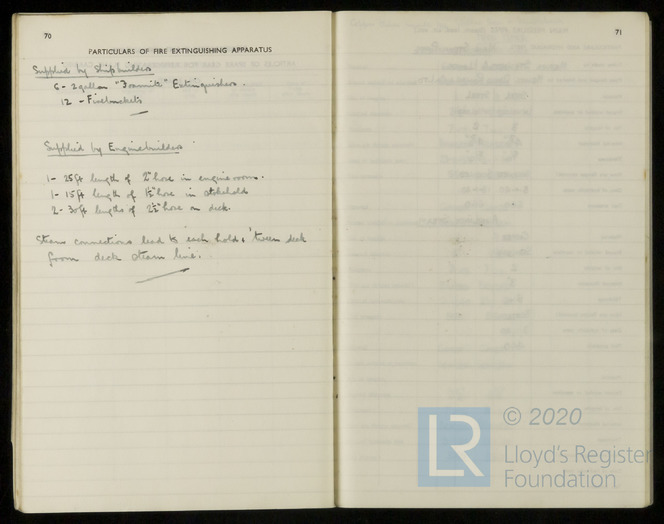 70
PARTICULARS OF FIRE EXTINGUISHING APPARATUS
Supplied by Shipbuilders
6 - 2 gallon "Foamite" Extinguishers.
12 - Firebuckets
Supplied by Enginebuilders
1 - 25ft length of 2" hose in engineroom.
1 - 15ft length of 1½" hose in stokehold
2 - 30ft lengths of 2½" hose on deck.
Steam connections lead to each hold & 'tween deck
from deck steam line.
71
LR
© 2020
Lloyd's Register
Foundation